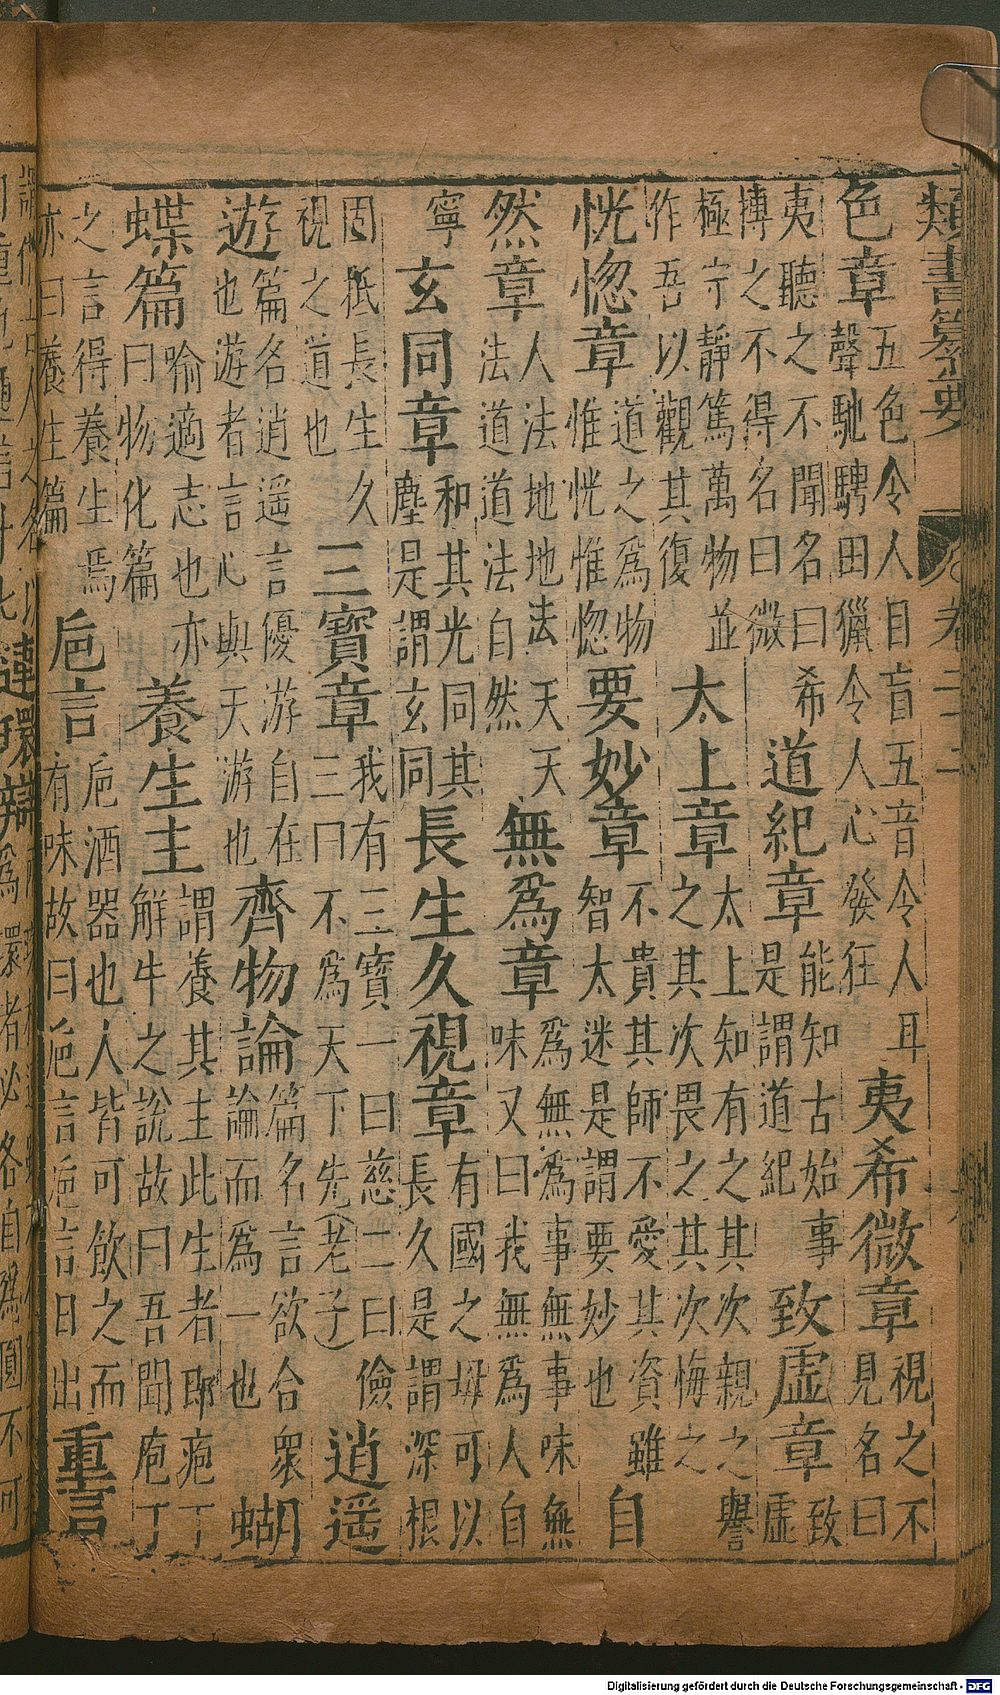 類書纂要 卷二
色章 五色令人目盲五音令人耳聲馳騁田獵令人心發狂 夷希微章 視之不見名曰
夷聽之不聞名曰希搏之不得名曰微 道紀章 能知古始事是謂道紀 致虛章 致虛
極守靜篤萬物並作吾以觀其復 太上章 太上知有之其次親之譽之其次畏之其次悔之
恍惚章 道之爲物惟恍惟惚 要妙章 不貴其師不愛其資雖智太迷是謂要妙也 自
然章 人法地地法天天法道道法自然 無爲章 爲無爲事無事味無味又曰我無爲人自
寧 玄同章 和其光同其塵是謂玄同 長生久視章 有國之母可以長久是謂深根
固柢長生久視之道也 三寶章 我有三寶一曰慈二曰儉三曰不爲天下先(老子) 逍遥
遊 篇名逍遥言優游自在也游者言心與天游也 齊物論 篇名言欲合衆論而爲一也 蝴
蝶篇 喻適志也亦曰物化篇 養生主 謂養其主此生者耶庖丁解牛之說故曰吾聞庖丁
之言得養生焉亦曰養生篇 巵言 巵酒器也人皆可飲之而有味故曰巵言巵言日出 重言
連環辯 爲環者必各自爲圓不可
Digitalisierung gefördert durch die Deutsche Forschungsgemeinschaft - DFG